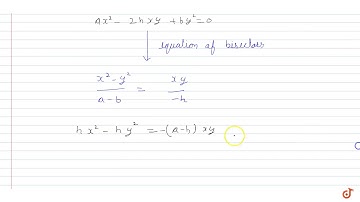 ax² - 2hxy + by² = 0
equation of bisectors
x² - y² / a - b = xy / -h
hx² - hy² = -(a-b) xy